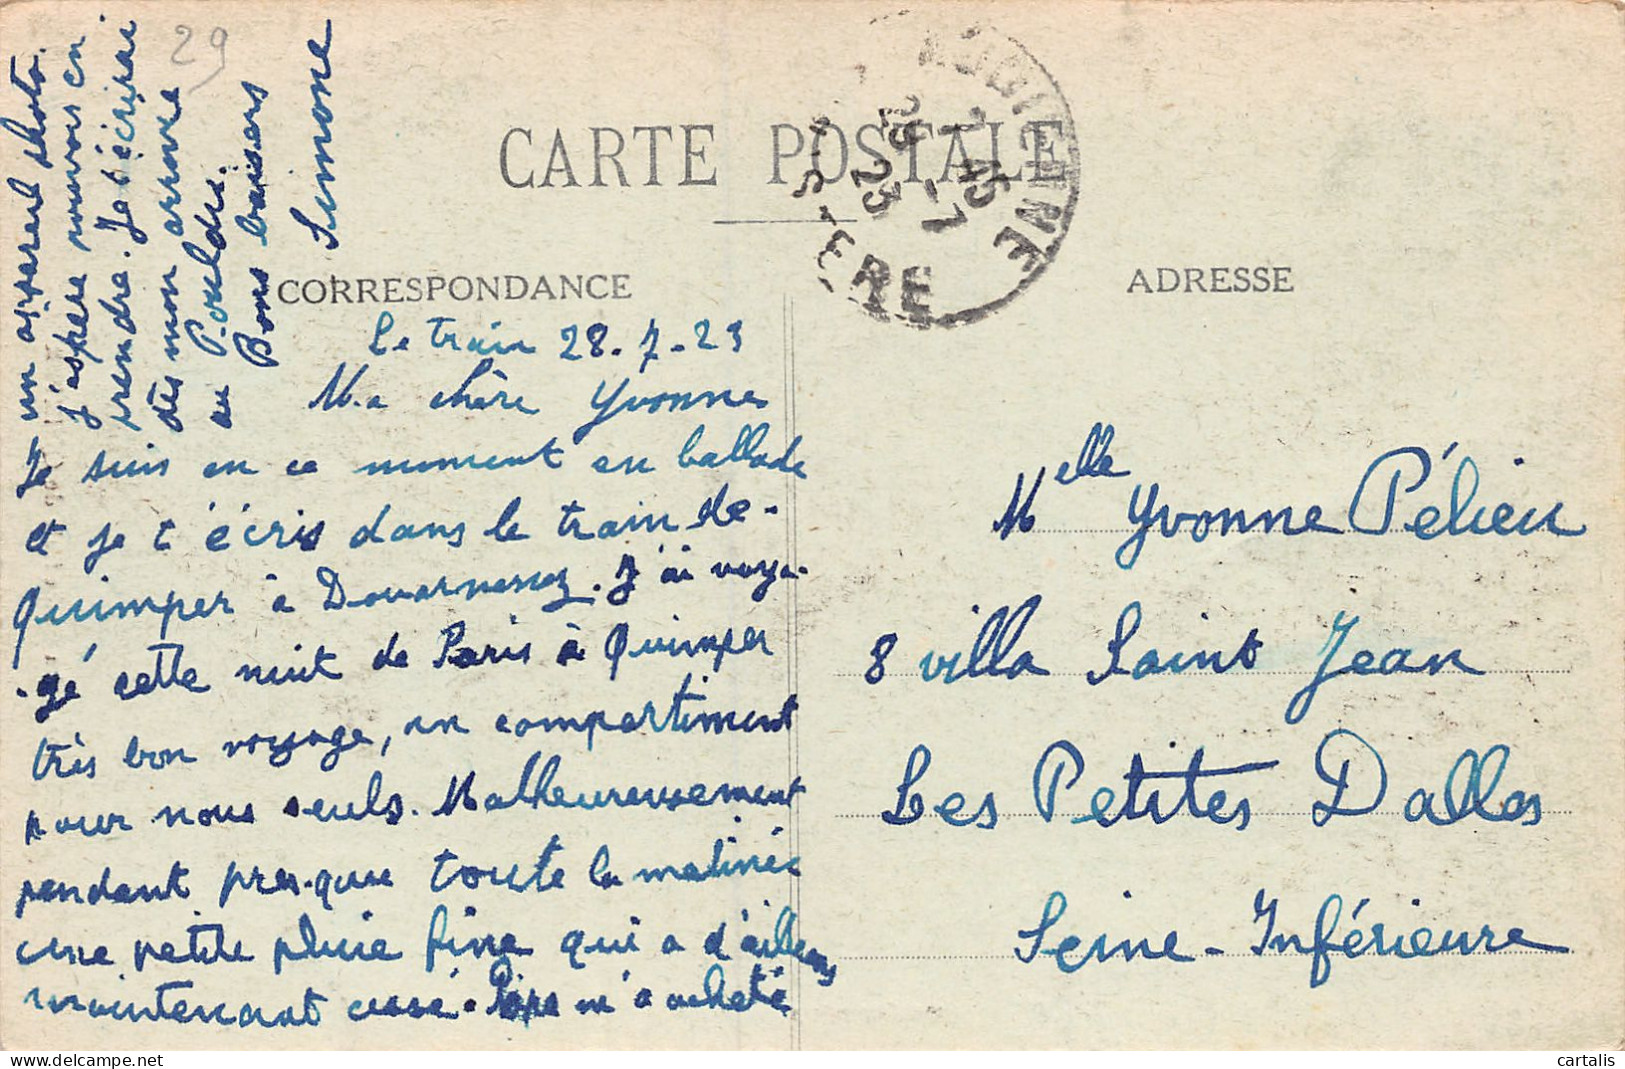 29
CARTE POSTALE
AUDIERNE
7 15
29 -7
23
FINISTERE
CORRESPONDANCE
ADRESSE
Le train 28-7-23
Ma chère Yvonne
Je suis en ce moment en ballade
et je t'écris dans le train de-
Quimper à Douarnenez. J'ai voya-
-gé cette nuit de Paris à Quimper
très bon voyage, un compartiment
pour nous seuls. Malheureusement
pendant pres-que toute la matinée
une petite pluie fine qui a d'ailleurs
maintenant cessé. m'a acheté
un appareil photo.
j'espère pouvoir en
prendre. Je t'écrirai
dès mon arrivée
au Pouldu.
Bons baisers
Simone
Melle Yvonne Pélieu
8 villa Saint Jean
Les Petites Dalles
Seine-Inférieure
cartalis